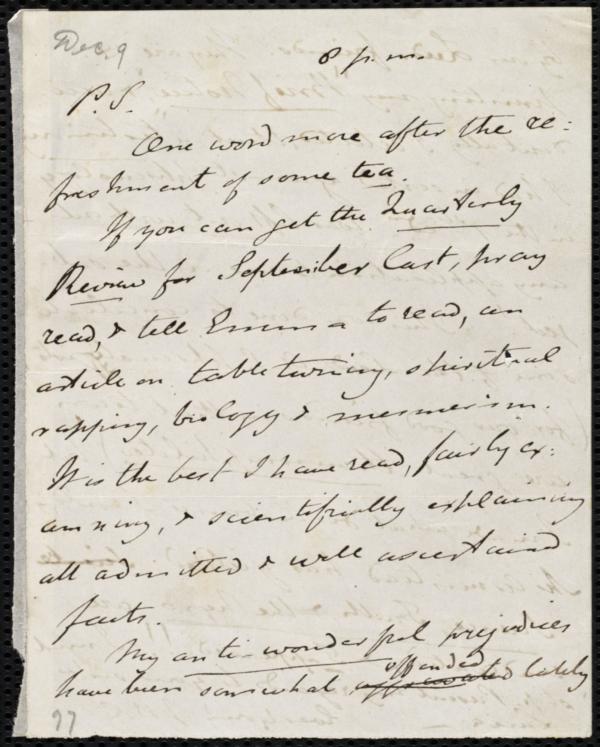 Dec. 9
8 p.m.
P.S.
One word more after the re:
freshment of some tea.
If you can get the Quarterly
Review for September last, pray
read, & tell Emma to read, an
article on table turning, spiritual
rapping, biology & mesmerism.
It is the best I have read, fairly ex:
amining, & scientifically explaining
all admitted & well ascertained
facts.
My anti-wonderful prejudices
offended
have been somewhat lately